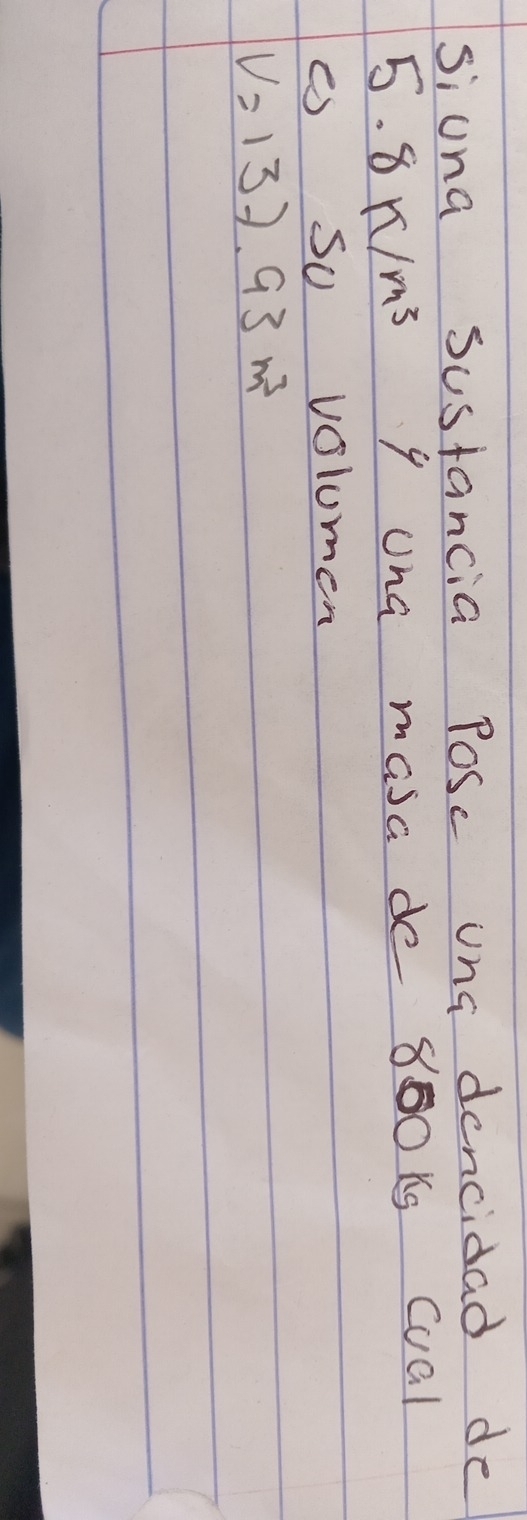 Si una sustancia Pose una dencidad de
5.8 K/m³ y una masa de 800 Kg Cual
es su volumen
V=137.93 m³